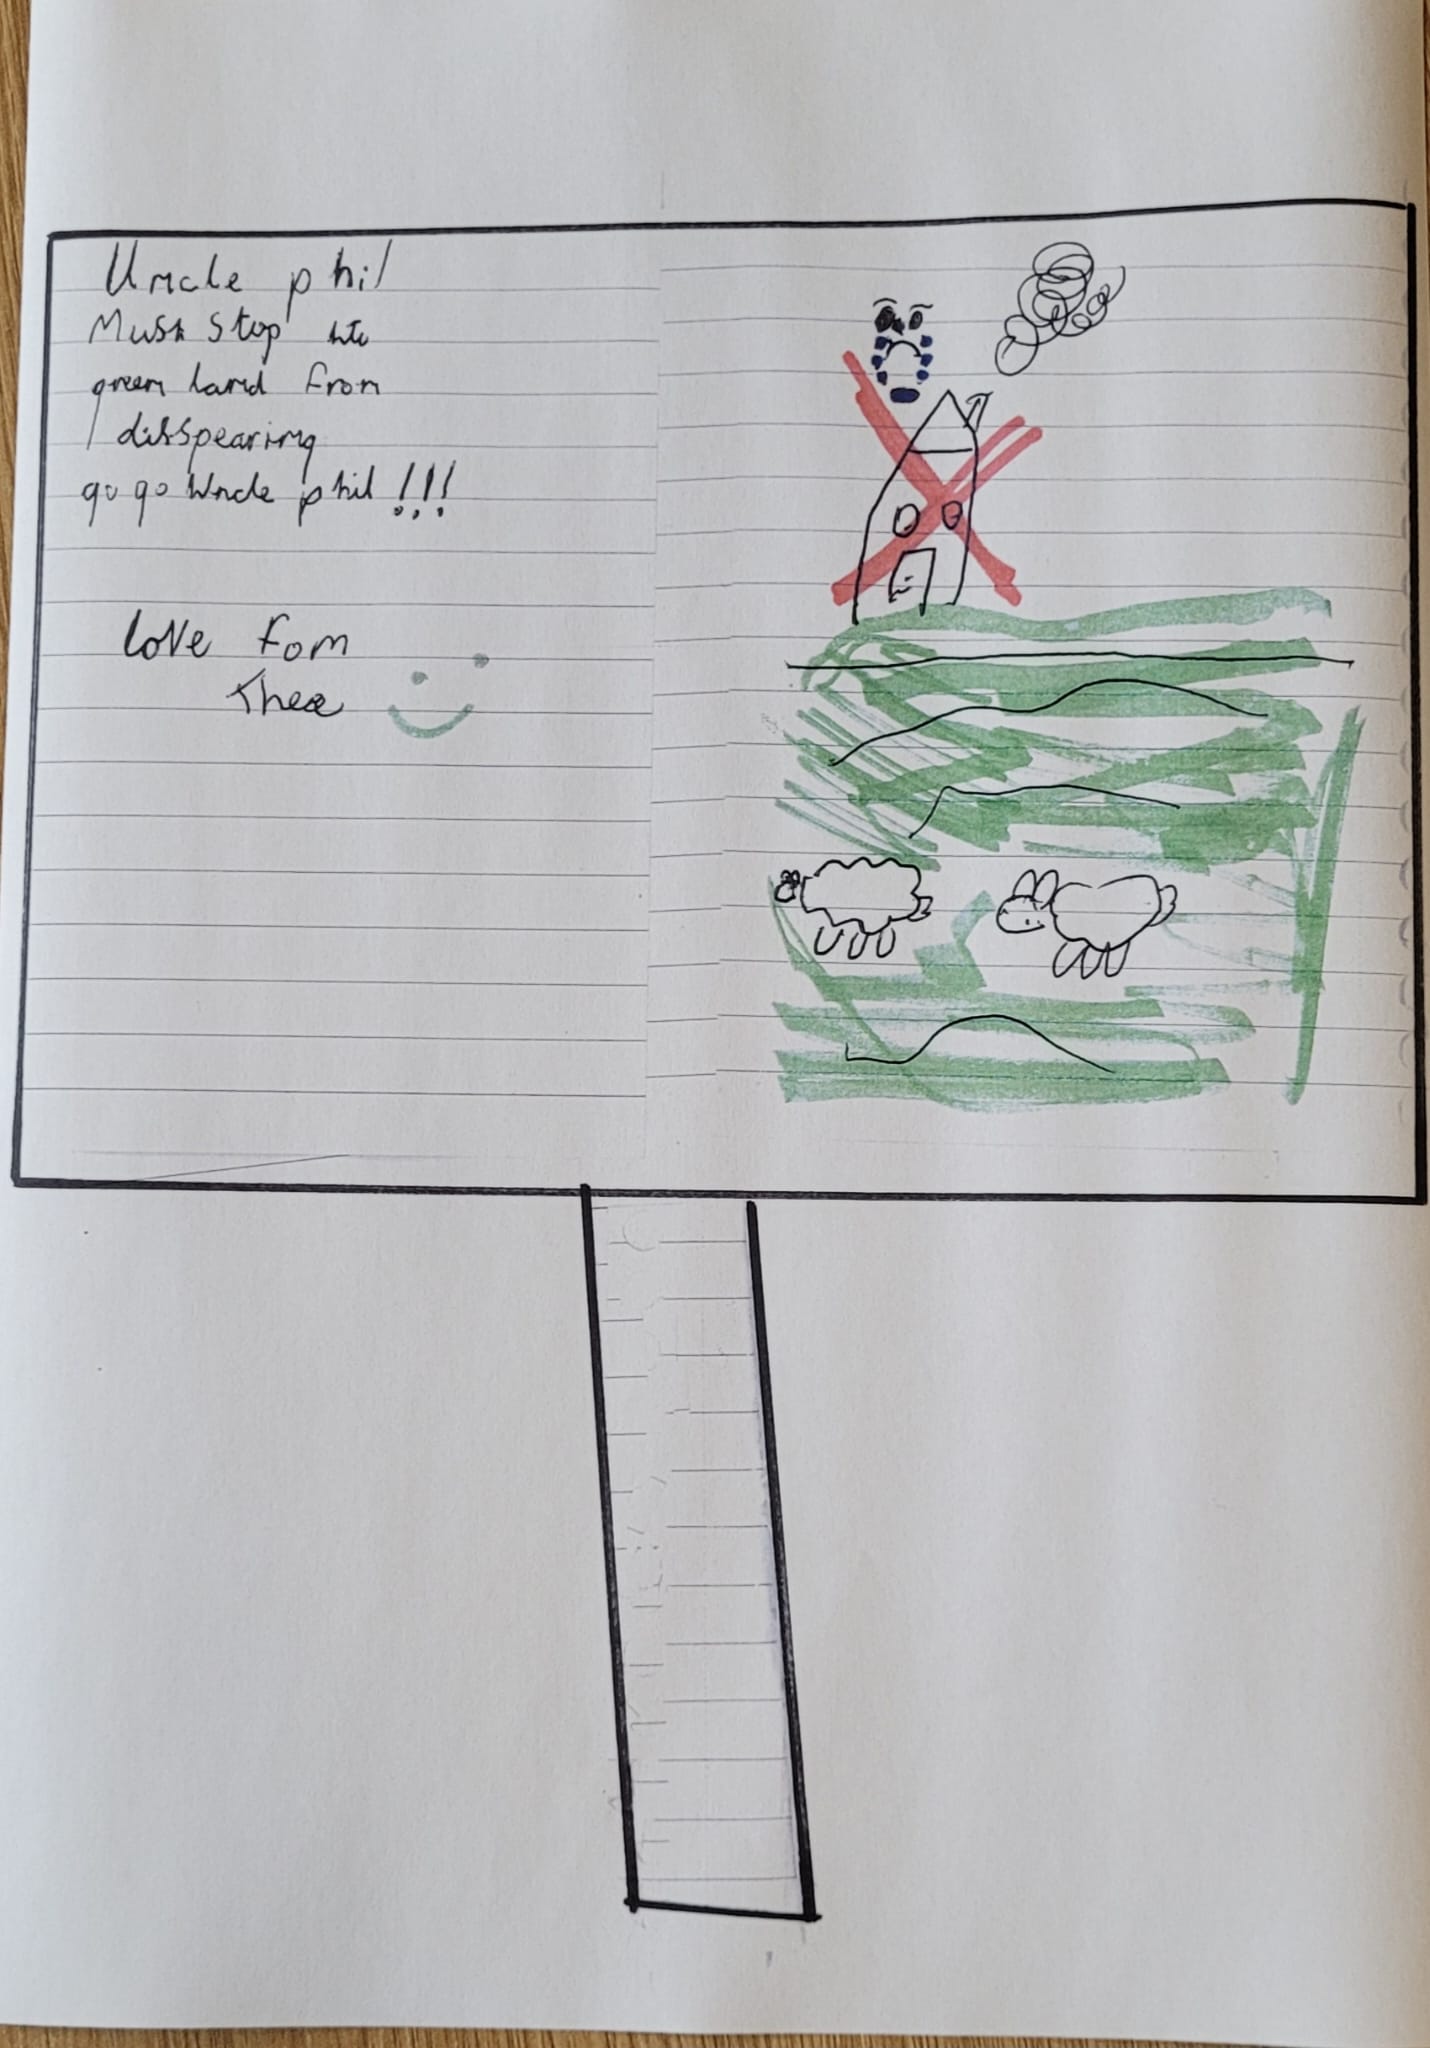 Uncle phil
Must stop the
green land from
disspearing
go go Uncle phil !!!
love fom
Thea